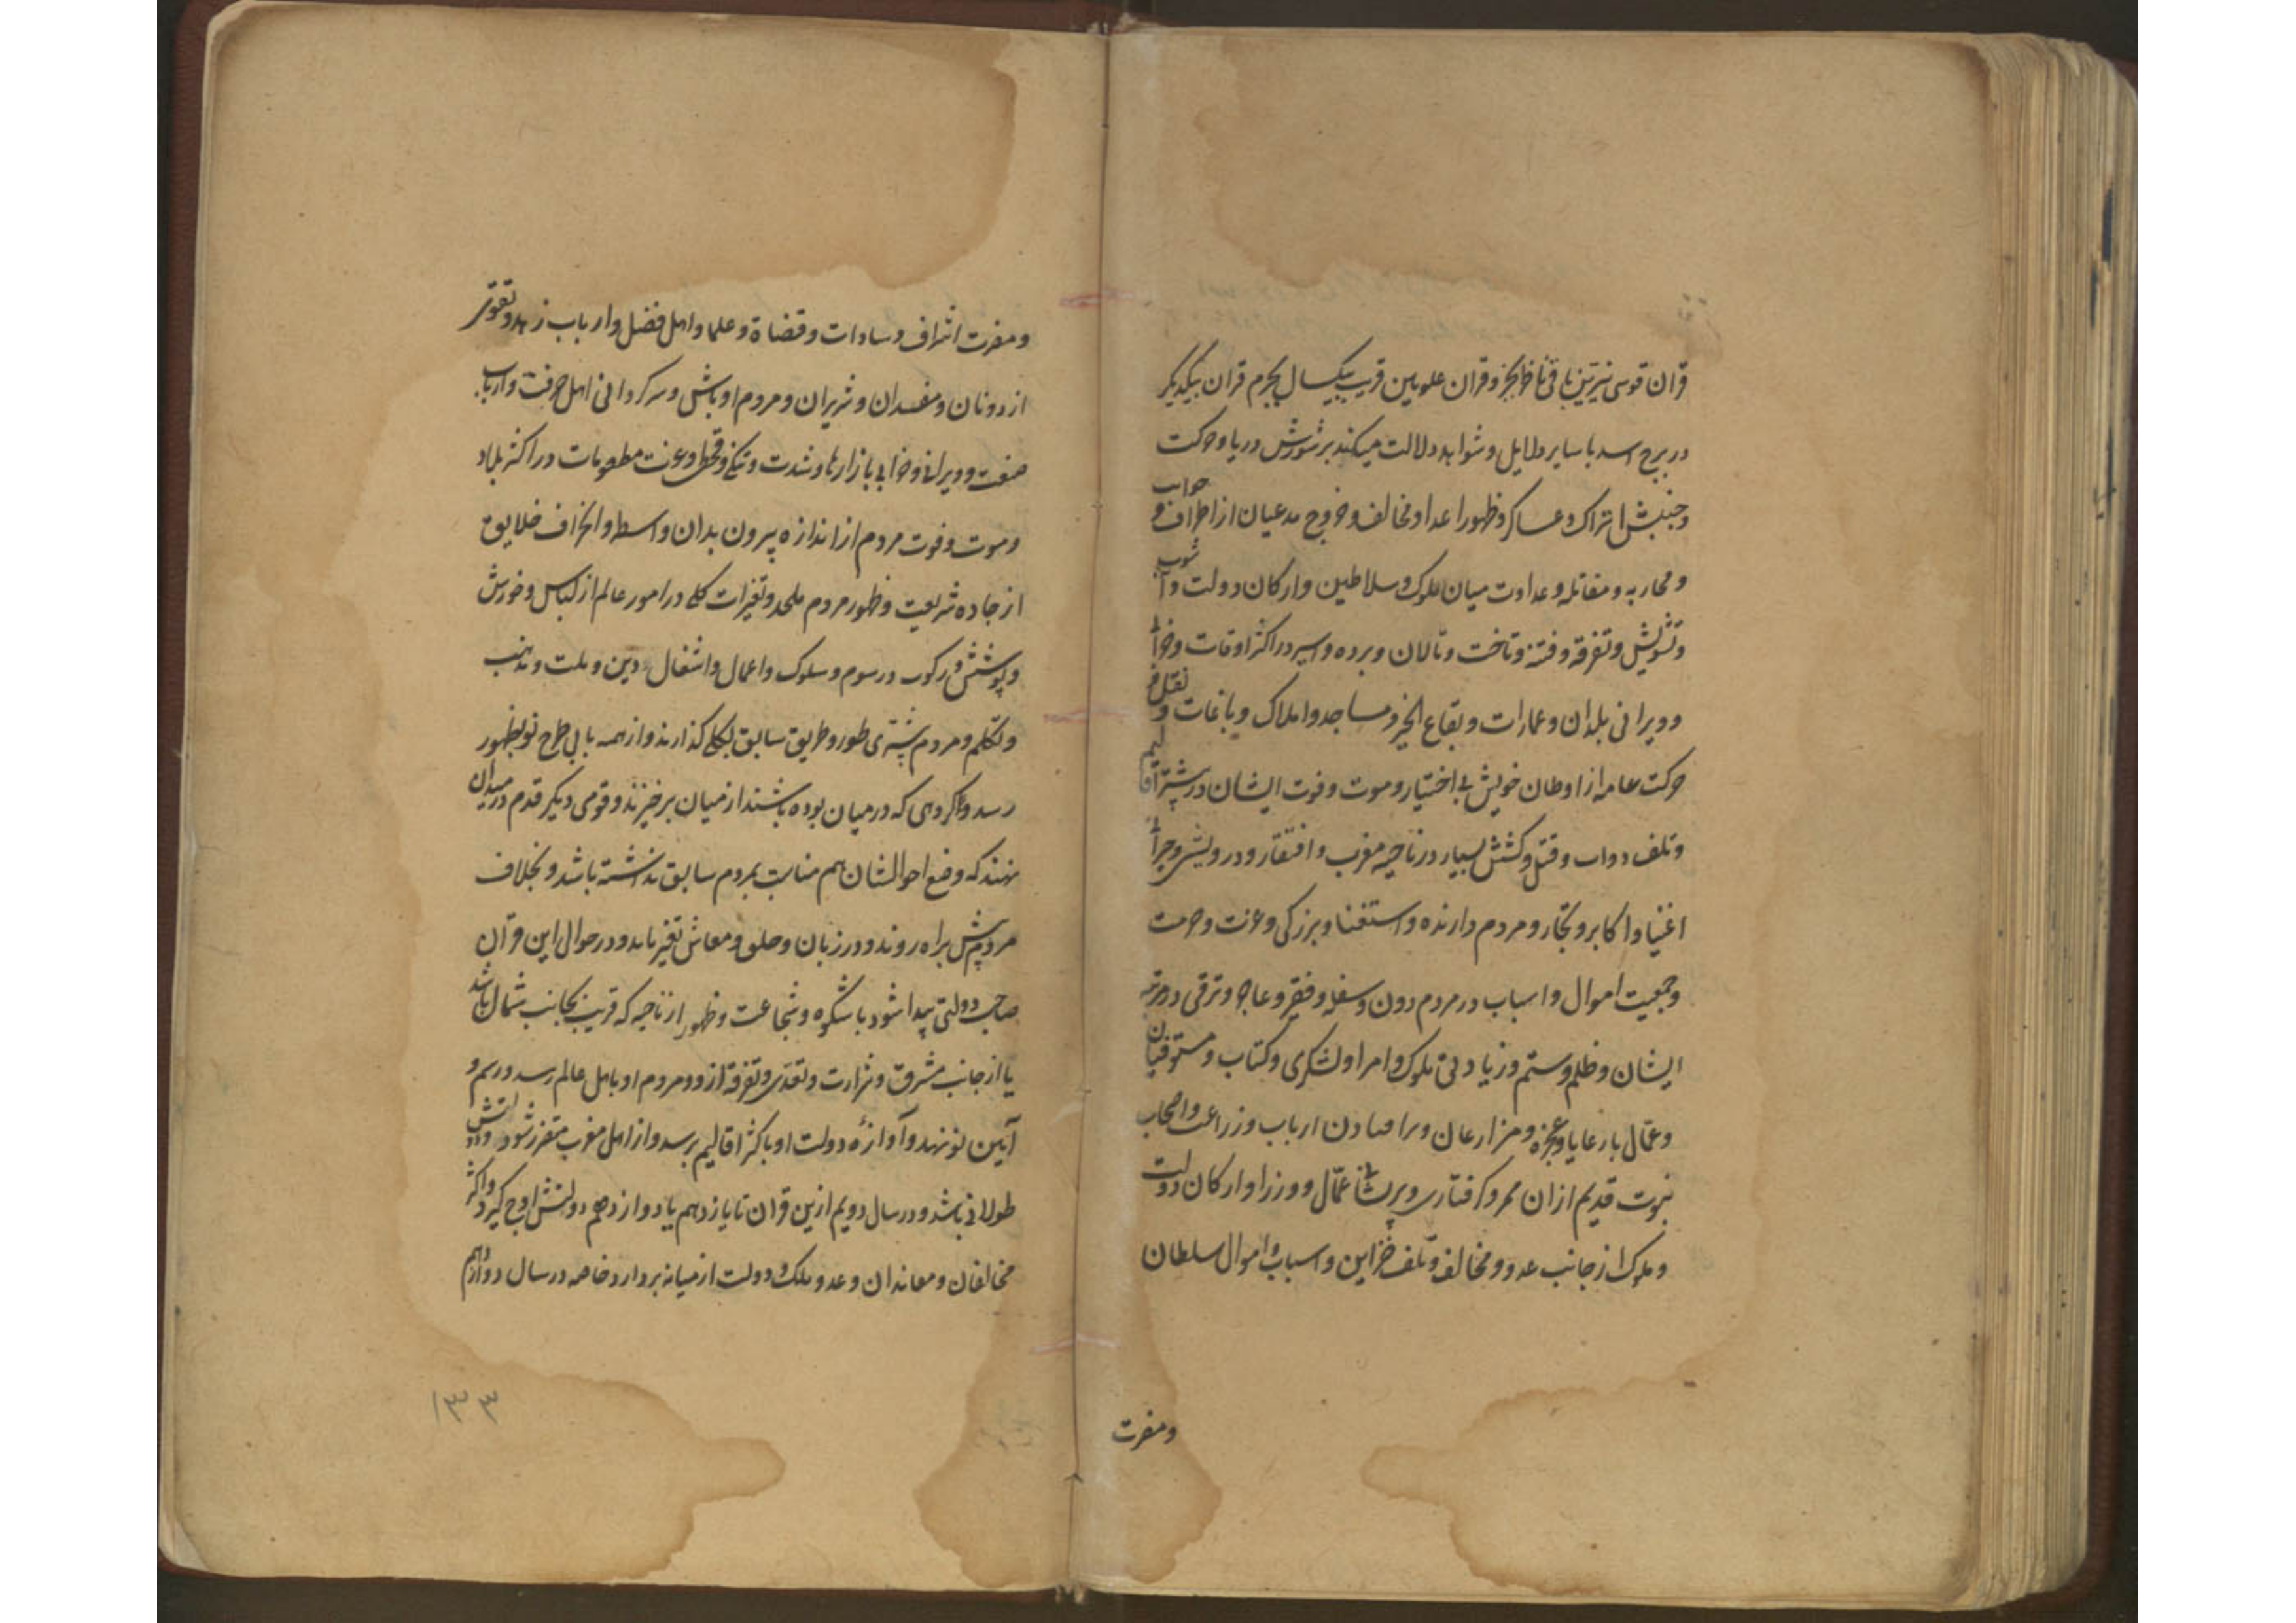 قران قوسی نیرین باقی تناظر الجز و قران علویین قریب بیکسال بجرم قران یکدیگر
در برج اسد با سایر دلایل و شواهد دلالت میکند بر شورش دریا و حرکت
و جنبش اتراک و عساکر و ظهور اعدا و مخالف و خروج مدعیان از اطراف و جوانب
و محاربه و مقاتله و عداوت میان ملوک و سلاطین و ارکان دولت و آشوب
و تشویش و تفرقه و فتنه و تاخت و تالان و برده و اسیر در اکثر اوقات و خرابی
و ویرانی بلدان و عمارات و بقاع الخیر و مساجد و املاک و باغات و نقل و
حرکت عامه از اوطان خویش بی اختیار و موت و فوت ایشان در بیشتر اقالیم
و تلف دواب و قتل و کشش بسیار در ناحیه مغرب و افتقار و درویشی و
اغنیا و اکابر و تجار و مردم دارنده و استغنا و بزرگی و عزت و حرمت
و جمعیت اموال و اسباب در مردم دون و سفله و فقیر و عاجز و ترقی در مرتبه
ایشان و ظلم و ستم و زیادتی ملوک و امرا و لشکری و کتاب و مستوفیان
و عمال با رعایا و عجزه و مزارعان و ارباب وزراعت و اصحاب
قدیم ازان ممر و گرفتاری و پریشانی عمّال و وزرا و ارکان دولت
و ملوک از جانب عدو و مخالف و تلف خزاین و اسباب و اموال سلطان
ومضرت
ومضرت اشراف و سادات و قضاة و علما و اهل فضل و ارباب زهد و تقوی
از دونان و مفسدان و شریران و مردم اوباش و سرگردانی اهل حرفت و ارباب
صنعت و ویرانی و خرابی بازارها و شدت و تنگی و قحط و عزت مطعومات در اکثر بلاد
و موت و فوت مردم از اندازه بیرون بدان واسطه و انحراف خلایق
از جاده شریعت و ظهور مردم ملحد و تغیرات کلی در امور عالم از لباس و خورش
و پوشش و رکوب و رسوم و سلوک و اعمال و اشغال و دین و ملت و مذهب
و تکلم و مردم بیشتری طور و طریق سابق بکلی گذارند و از همه بابی طرح نو بظهور
رسد و گروهی که در میان بوده باشند از میان برخیزند و قومی دیگر قدم در میدان
نهند که وضع احوالشان هم مناسبت بمردم سابق نداشته باشد و بخلاف
مردم پیش براه روند و در زبان و خلق و معاش تغیر یابد و در حوال این قران
صاحب دولتی پیدا شود با شکوه و شجاعت و ظهور از ناحیه که قریب بجانب شمال باشد
یا از جانب مشرق و شرارت و تعدّی و تفرقه ازو و مردم او باهل عالم رسد و رسم و
آیین نو نهد و آوازهٔ دولت او باکثر اقالیم برسد و از اهل مغرب متضرر شود
طولانی باشد و در سال دویم ازین قران تا یازدهم یا دوازدهم دولتش اوج گیرد و اکثر
مخالفان و معاندان و عدو ملک و دولت از میانه بردارد خاصه در سال دوازدهم
۱۳۳